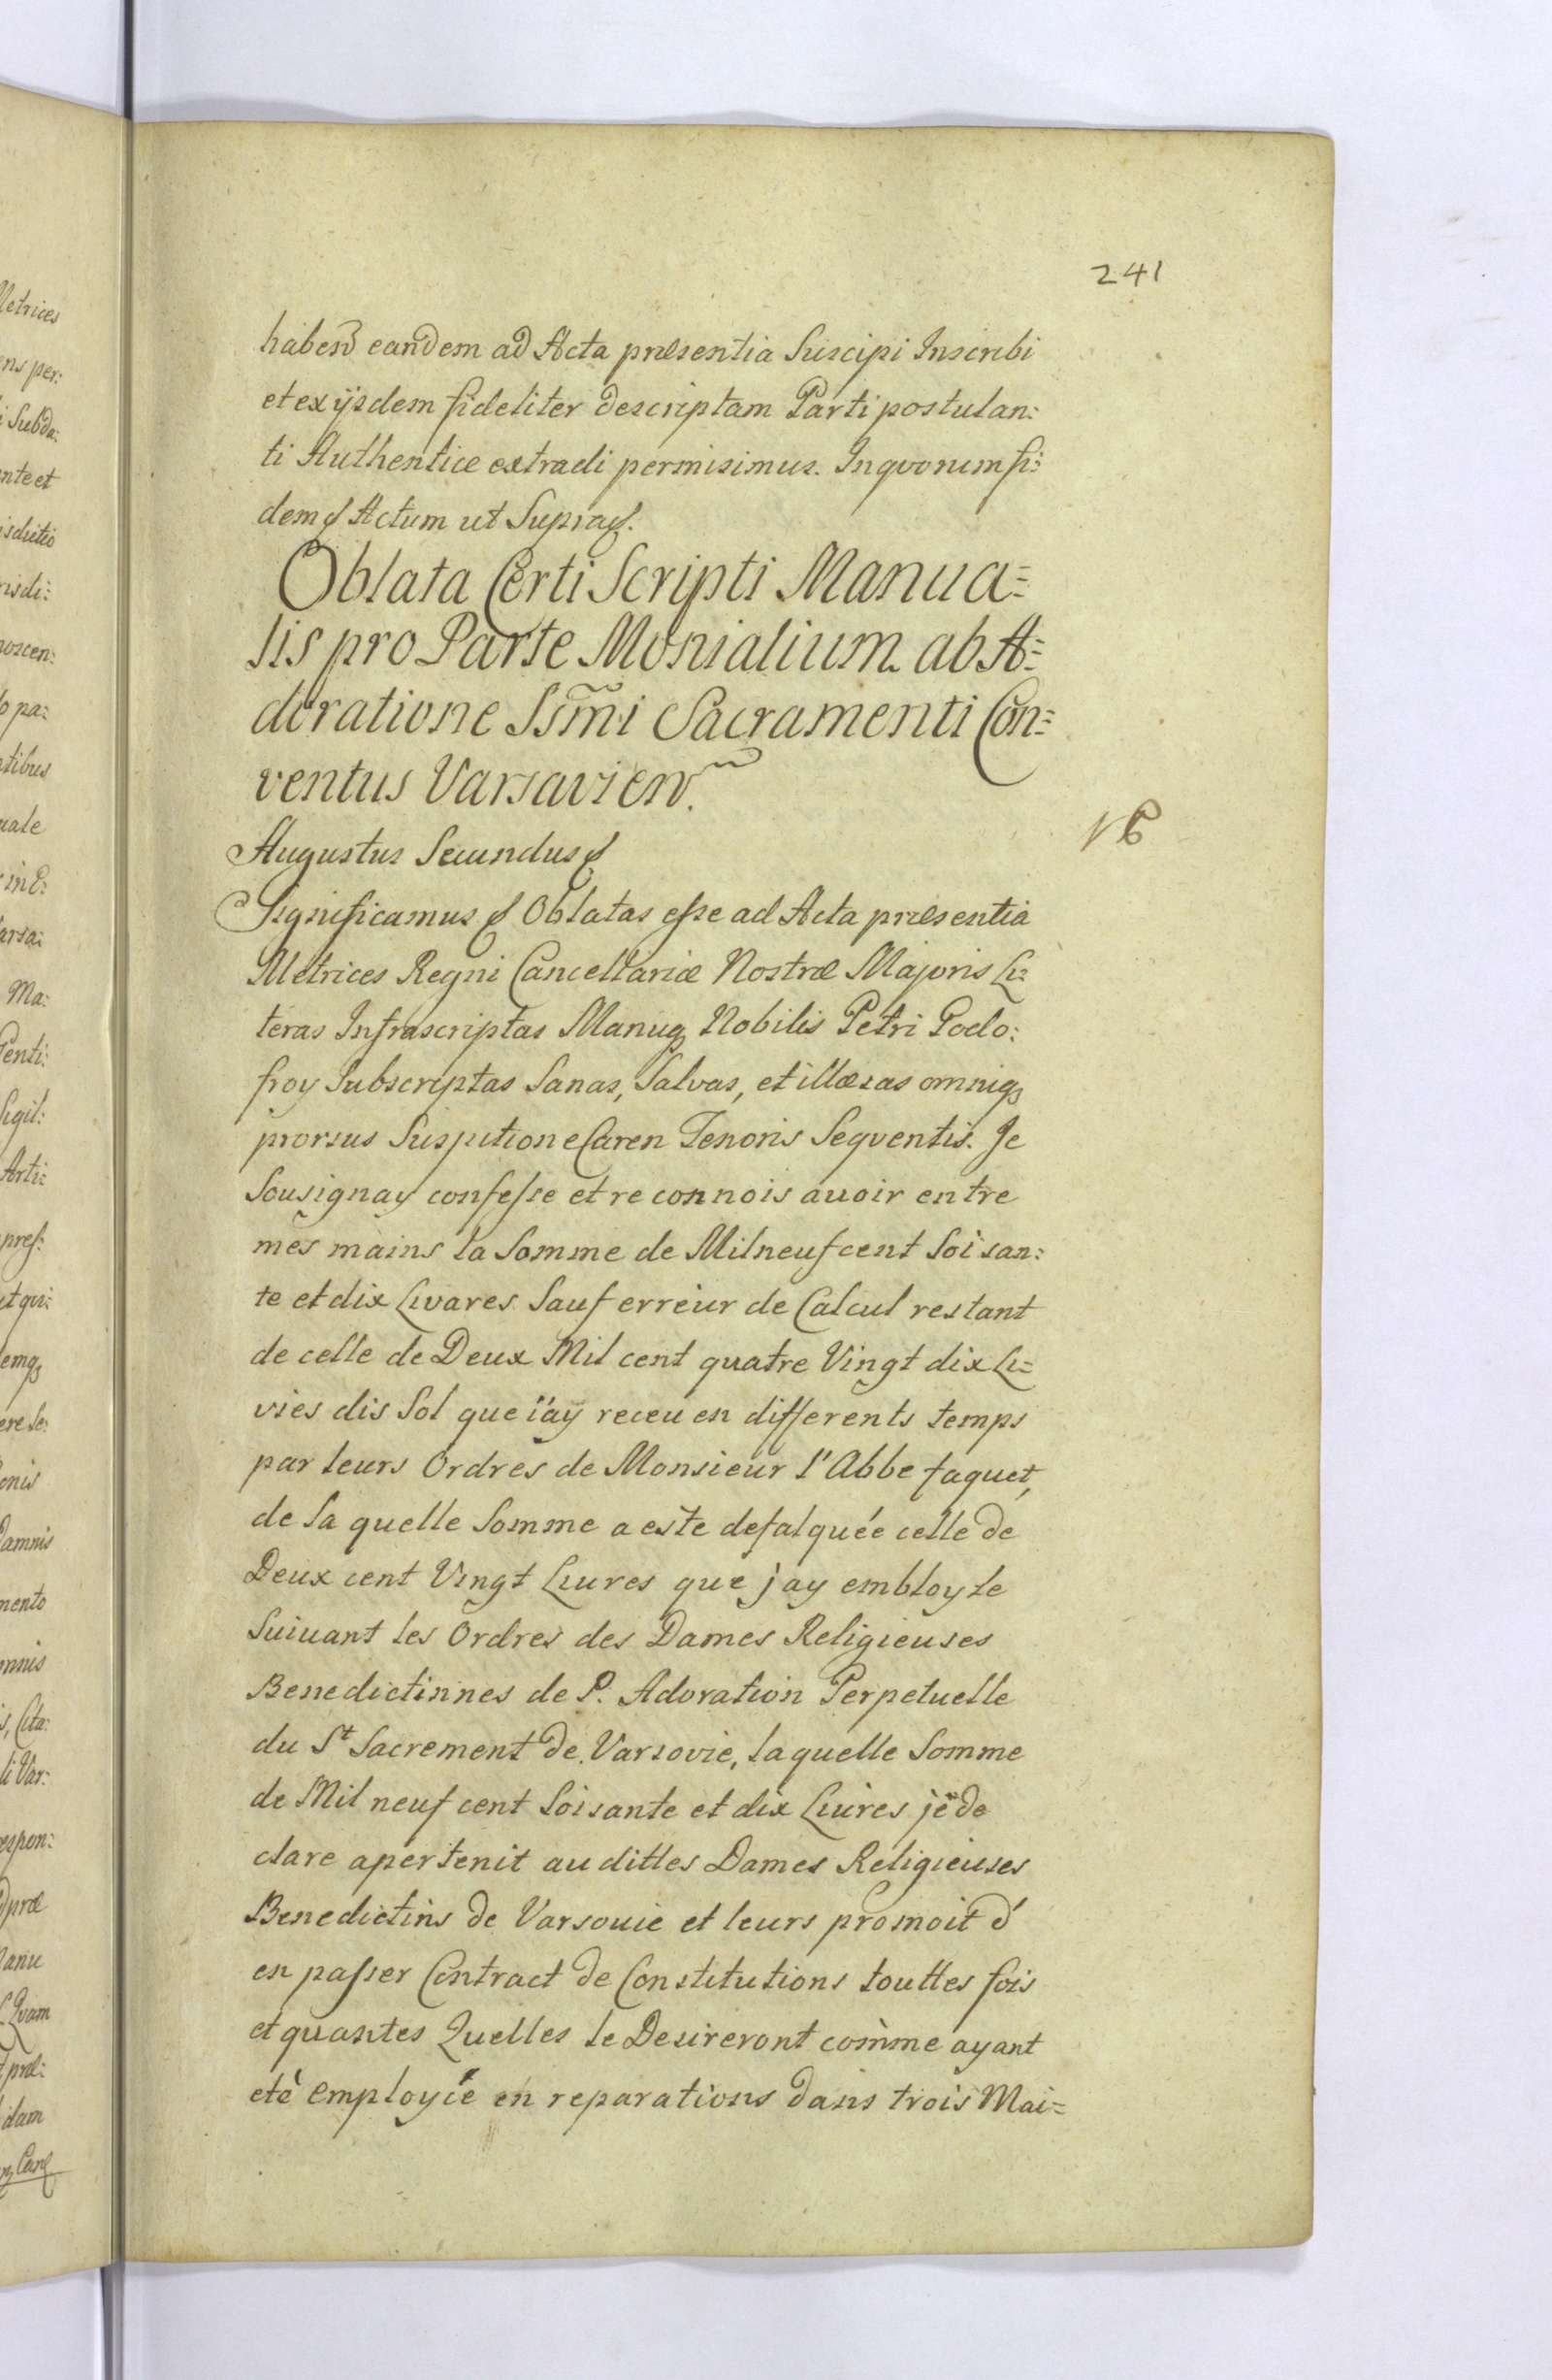 241
haben̄ eandem ad Acta præsentia Suscipi Inscribi
et ex ijsdem fideliter descriptam Parti postulan:
ti Authentice extradi permisimus. In qvorum fi:
dem Actum ut Supra.
Oblata Certi Scripti Manua=
lis pro Parte Monialium ab A=
doratione Ssm̃i Sacramenti Con=
ventus Varsavien.
Augustus Secundus
Significamus Oblatas eſse ad Acta præsentia
Metrices Regni Cancellariæ Nostræ Majoris Li=
teras Infrascriptas Manuq3 Nobilis Petri Podo:
froy Subscriptas Sanas, Salvas, et illæsas omniq3
prorsus Suspitione Caren Tenoris Seqventis. Je
Sousignay confeſse et reconnois auoir entre
mes mains la Somme de Mil neuf cent Soisan:
te et dix Livares Sauf erreur de Calcul restant
de celle de Deux Mil cent quatre Vingt dix Li=
vies dis Sol que i'ay receu en differents temps
par leurs Ordres de Monsieur l'Abbe faquet,
de la quelle Somme a este defalquée celle de
Deux cent Vingt Liures que j'ay embloyle
Suiuant les Ordres des Dames Religieuses
Benedictinnes de P. Adoration Perpetuelle
du St Sacrement de Varsovie, la quelle Somme
de Mil neuf cent Soisante et dix Liures je de
clare apertenit au dittes Dames Religieuses
Benedictins de Varsouie et leurs promoit d'
en paſser Contract de Constitutions touttes fois
et quantes Quelles le Desireront comme ayant
eté employée en reparations dans trois Mai=